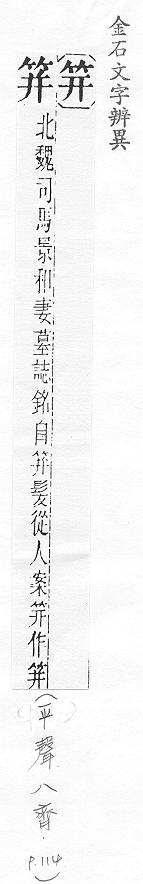 金石文字辨異
〔笄〕
筓 北魏司馬景和妻墓誌銘自筓髮從人案笄作筓
(平聲.八齊.P.114)